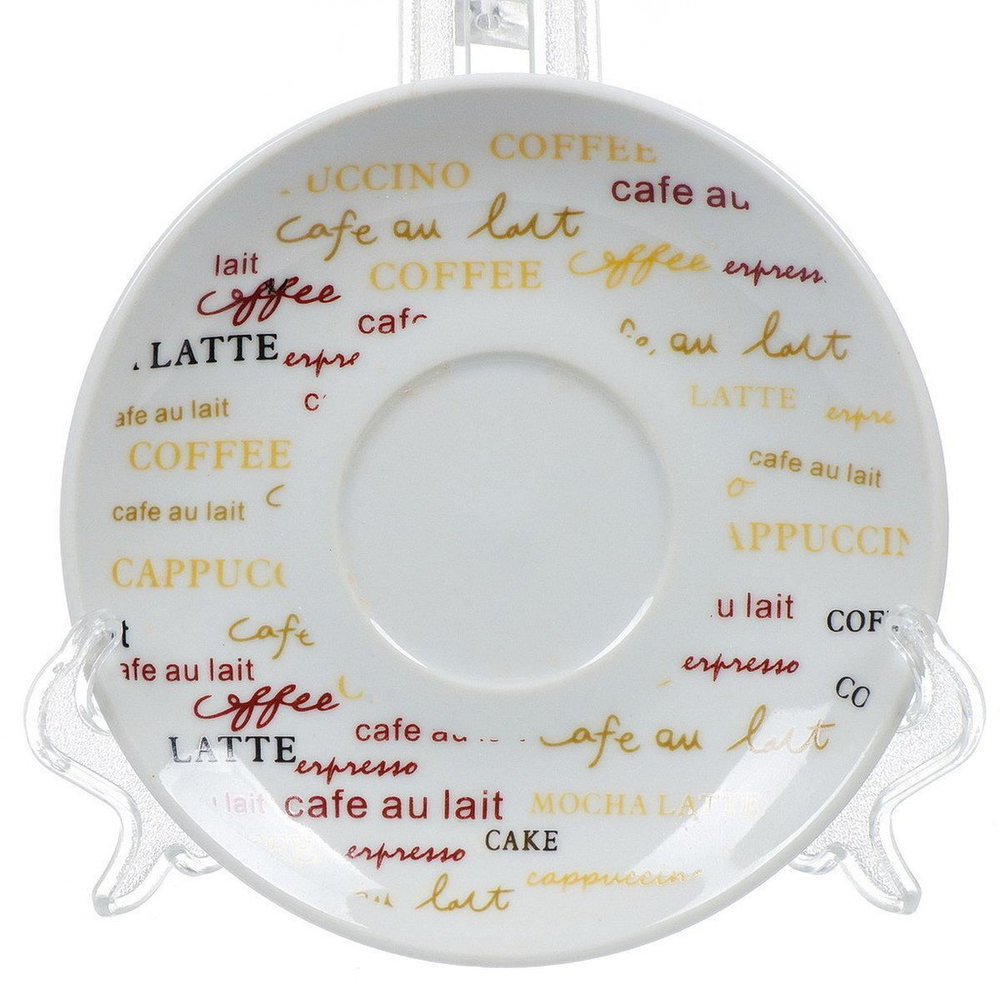 COFFEE
UCCINO
cafe au
cafe au lait
lait
COFFEE
coffee
espress
coffee
cafe
au lait
LATTE
espre
LATTE
espre
afe au lait
COFFEE
cafe au lait
cafe au lait
CAPPUCC
APPUCCIN
u lait
COF
t
Cafe
afe au lait
espresso
CO
coffee
cafe au
cafe au lait
LATTE
espresso
lait
cafe au lait
MOCHA LATTE
espresso
CAKE
cappuccin
au lait